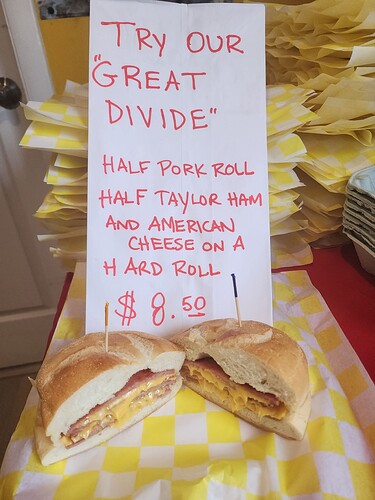 TRY OUR
"GREAT
DIVIDE"
HALF PORK ROLL
HALF TAYLOR HAM
AND AMERICAN
CHEESE ON A
HARD ROLL
$8.50